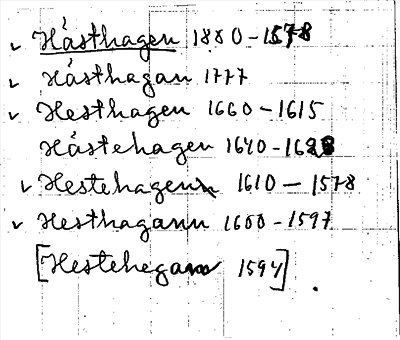 ✓ Hásthagen 1880-1578
✓ Hásthagan 1777
✓ Hesthagen 1660-1615
Hástehagen 1640-1628
✓ Hestehagen 1610-1578
✓ Hesthagann 1600-1597
[Hestehegan 1594].